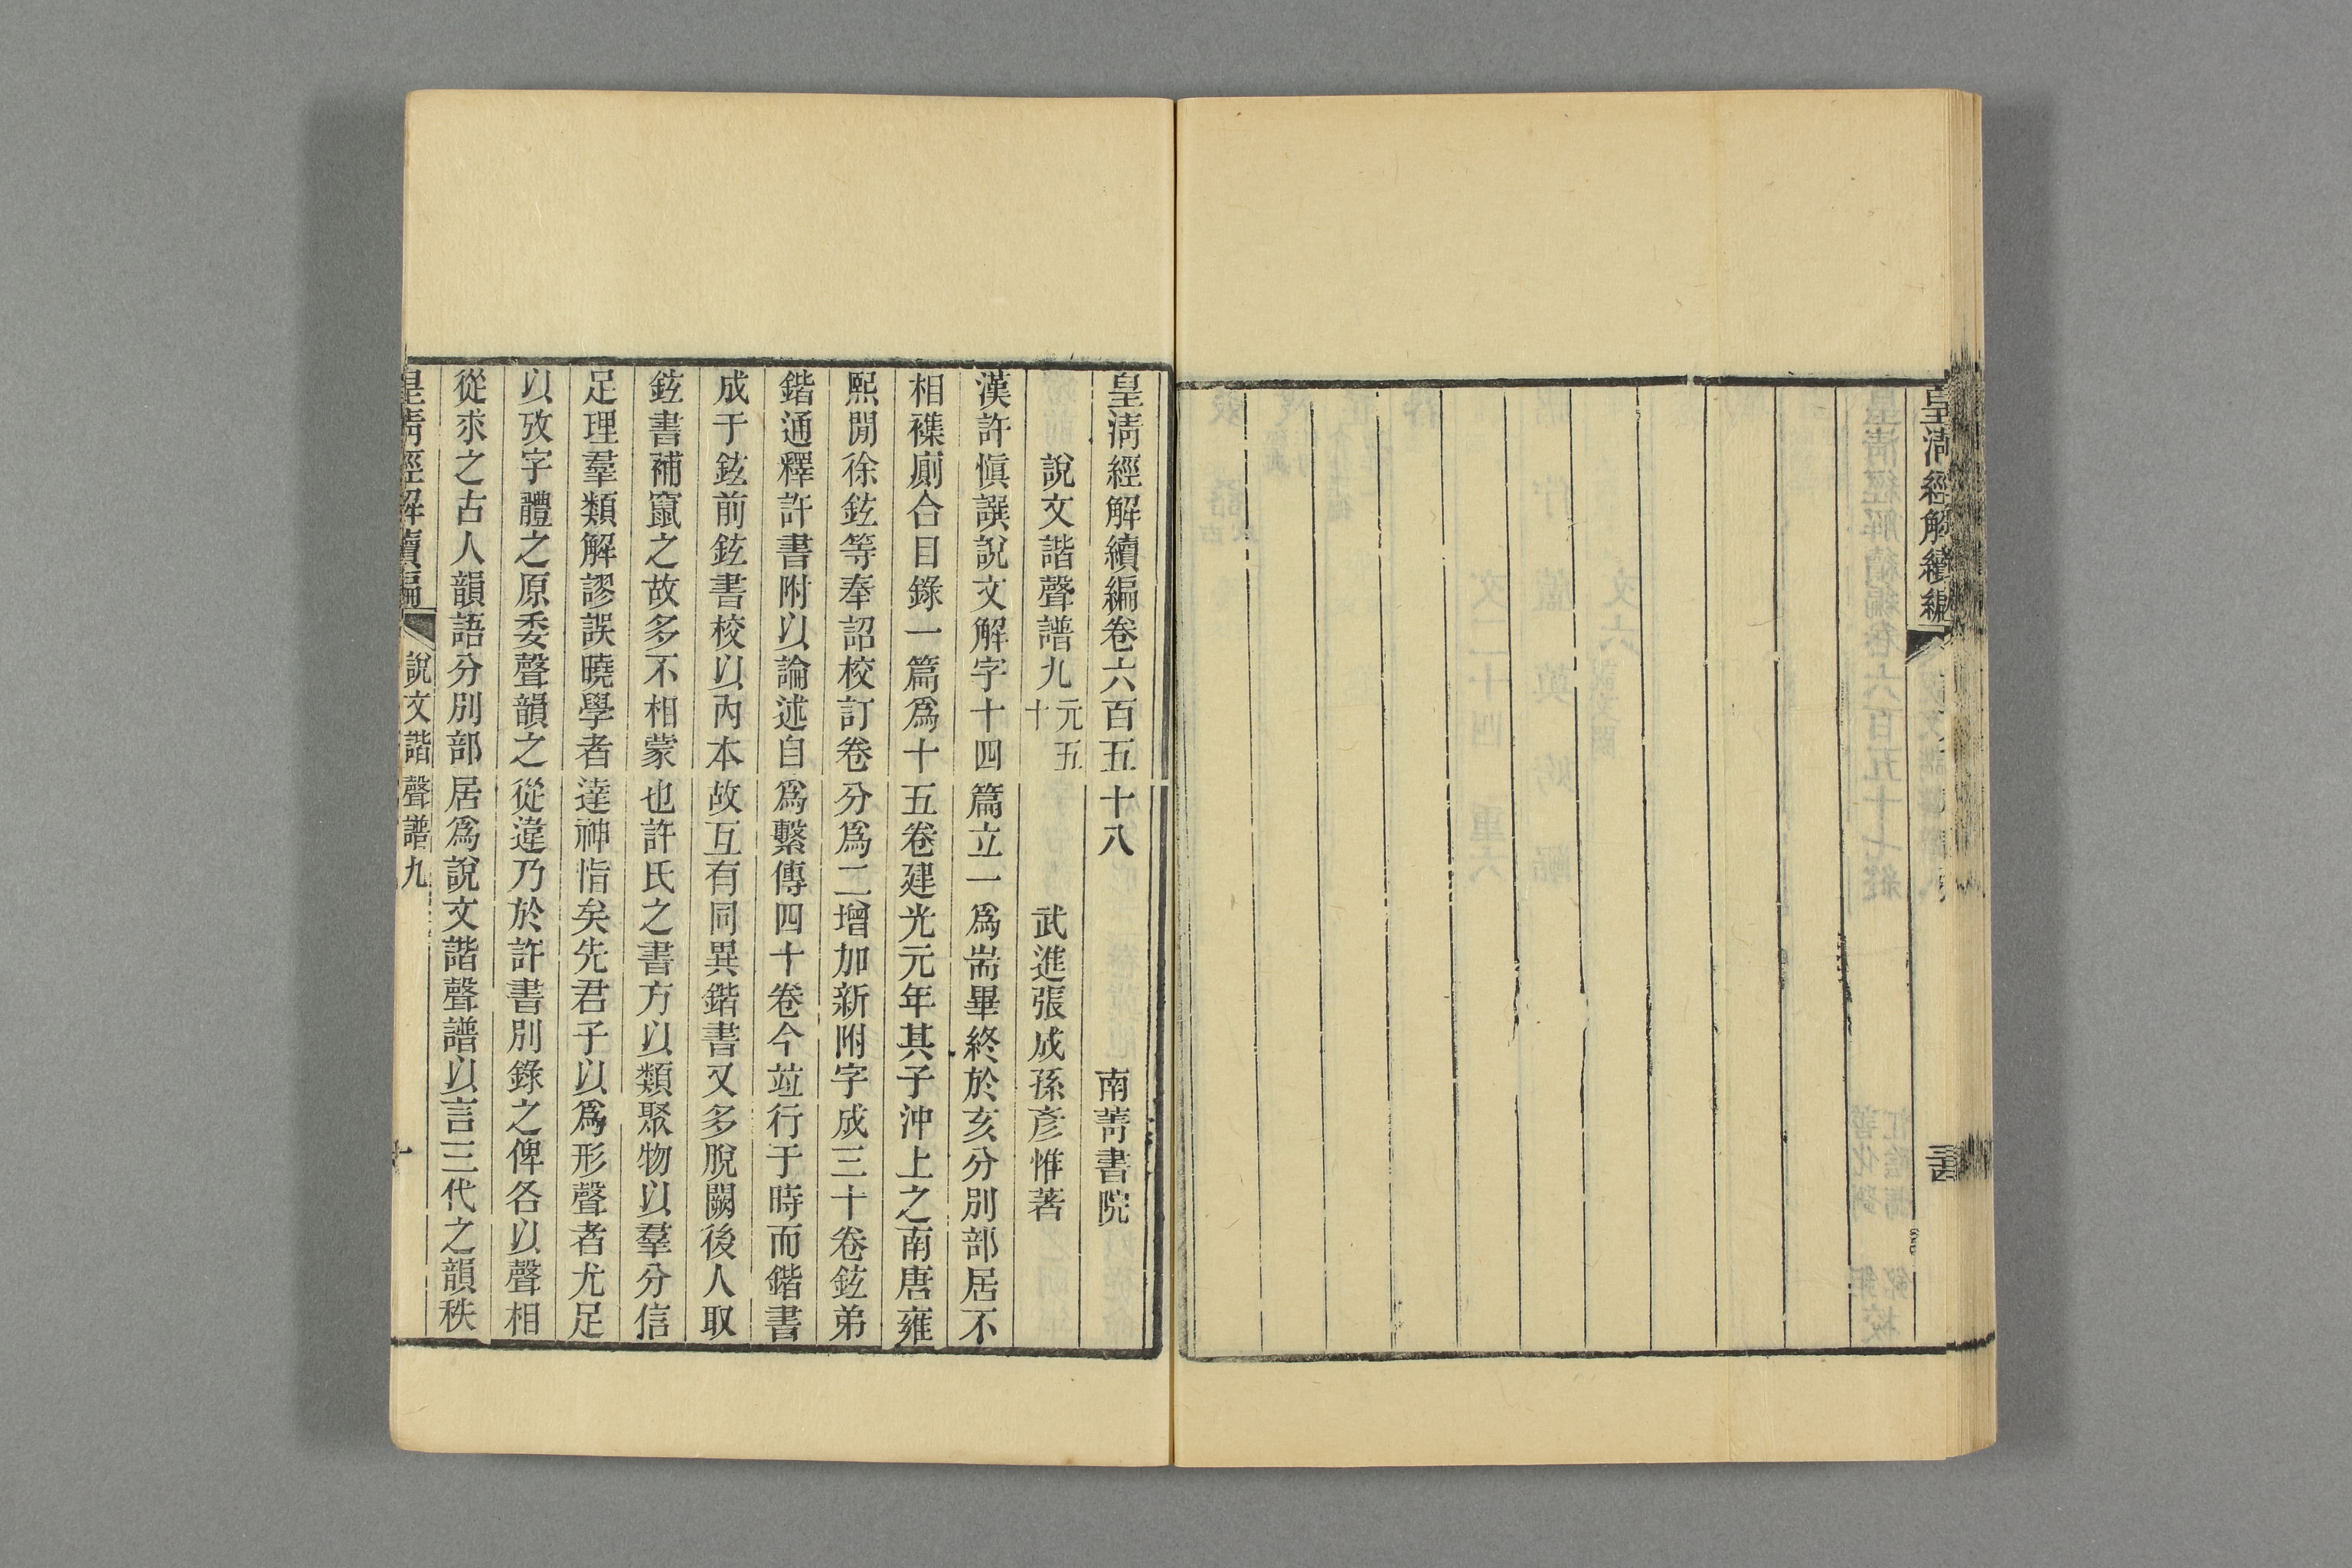 皇清經解續編
皇清經解續編卷六百五十八　南菁書院
說文諧聲譜九　元五十　武進張成孫彥惟著
漢許愼譔說文解字十四篇立一爲耑畢終於亥分別部居不
相襍廁合目錄一篇爲十五卷建光元年其子沖上之南唐雍
熙閒徐鉉等奉詔校訂卷分爲二增加新附字成三十卷鉉弟
鍇通釋許書附以論述自爲繫傳四十卷今竝行于時而鍇書
成于鉉前鉉書校以內本故互有同異鍇書又多脫闕後人取
鉉書補竄之故多不相蒙也許氏之書方以類聚物以羣分信
足理羣類解謬誤曉學者達神恉矣先君子以爲形聲者尤足
以攷字體之原委聲韻之從違乃於許書別錄之俾各以聲相
從求之古人韻語分別部居爲說文諧聲譜以言三代之韻秩
皇清經解續編　說文諧聲譜九